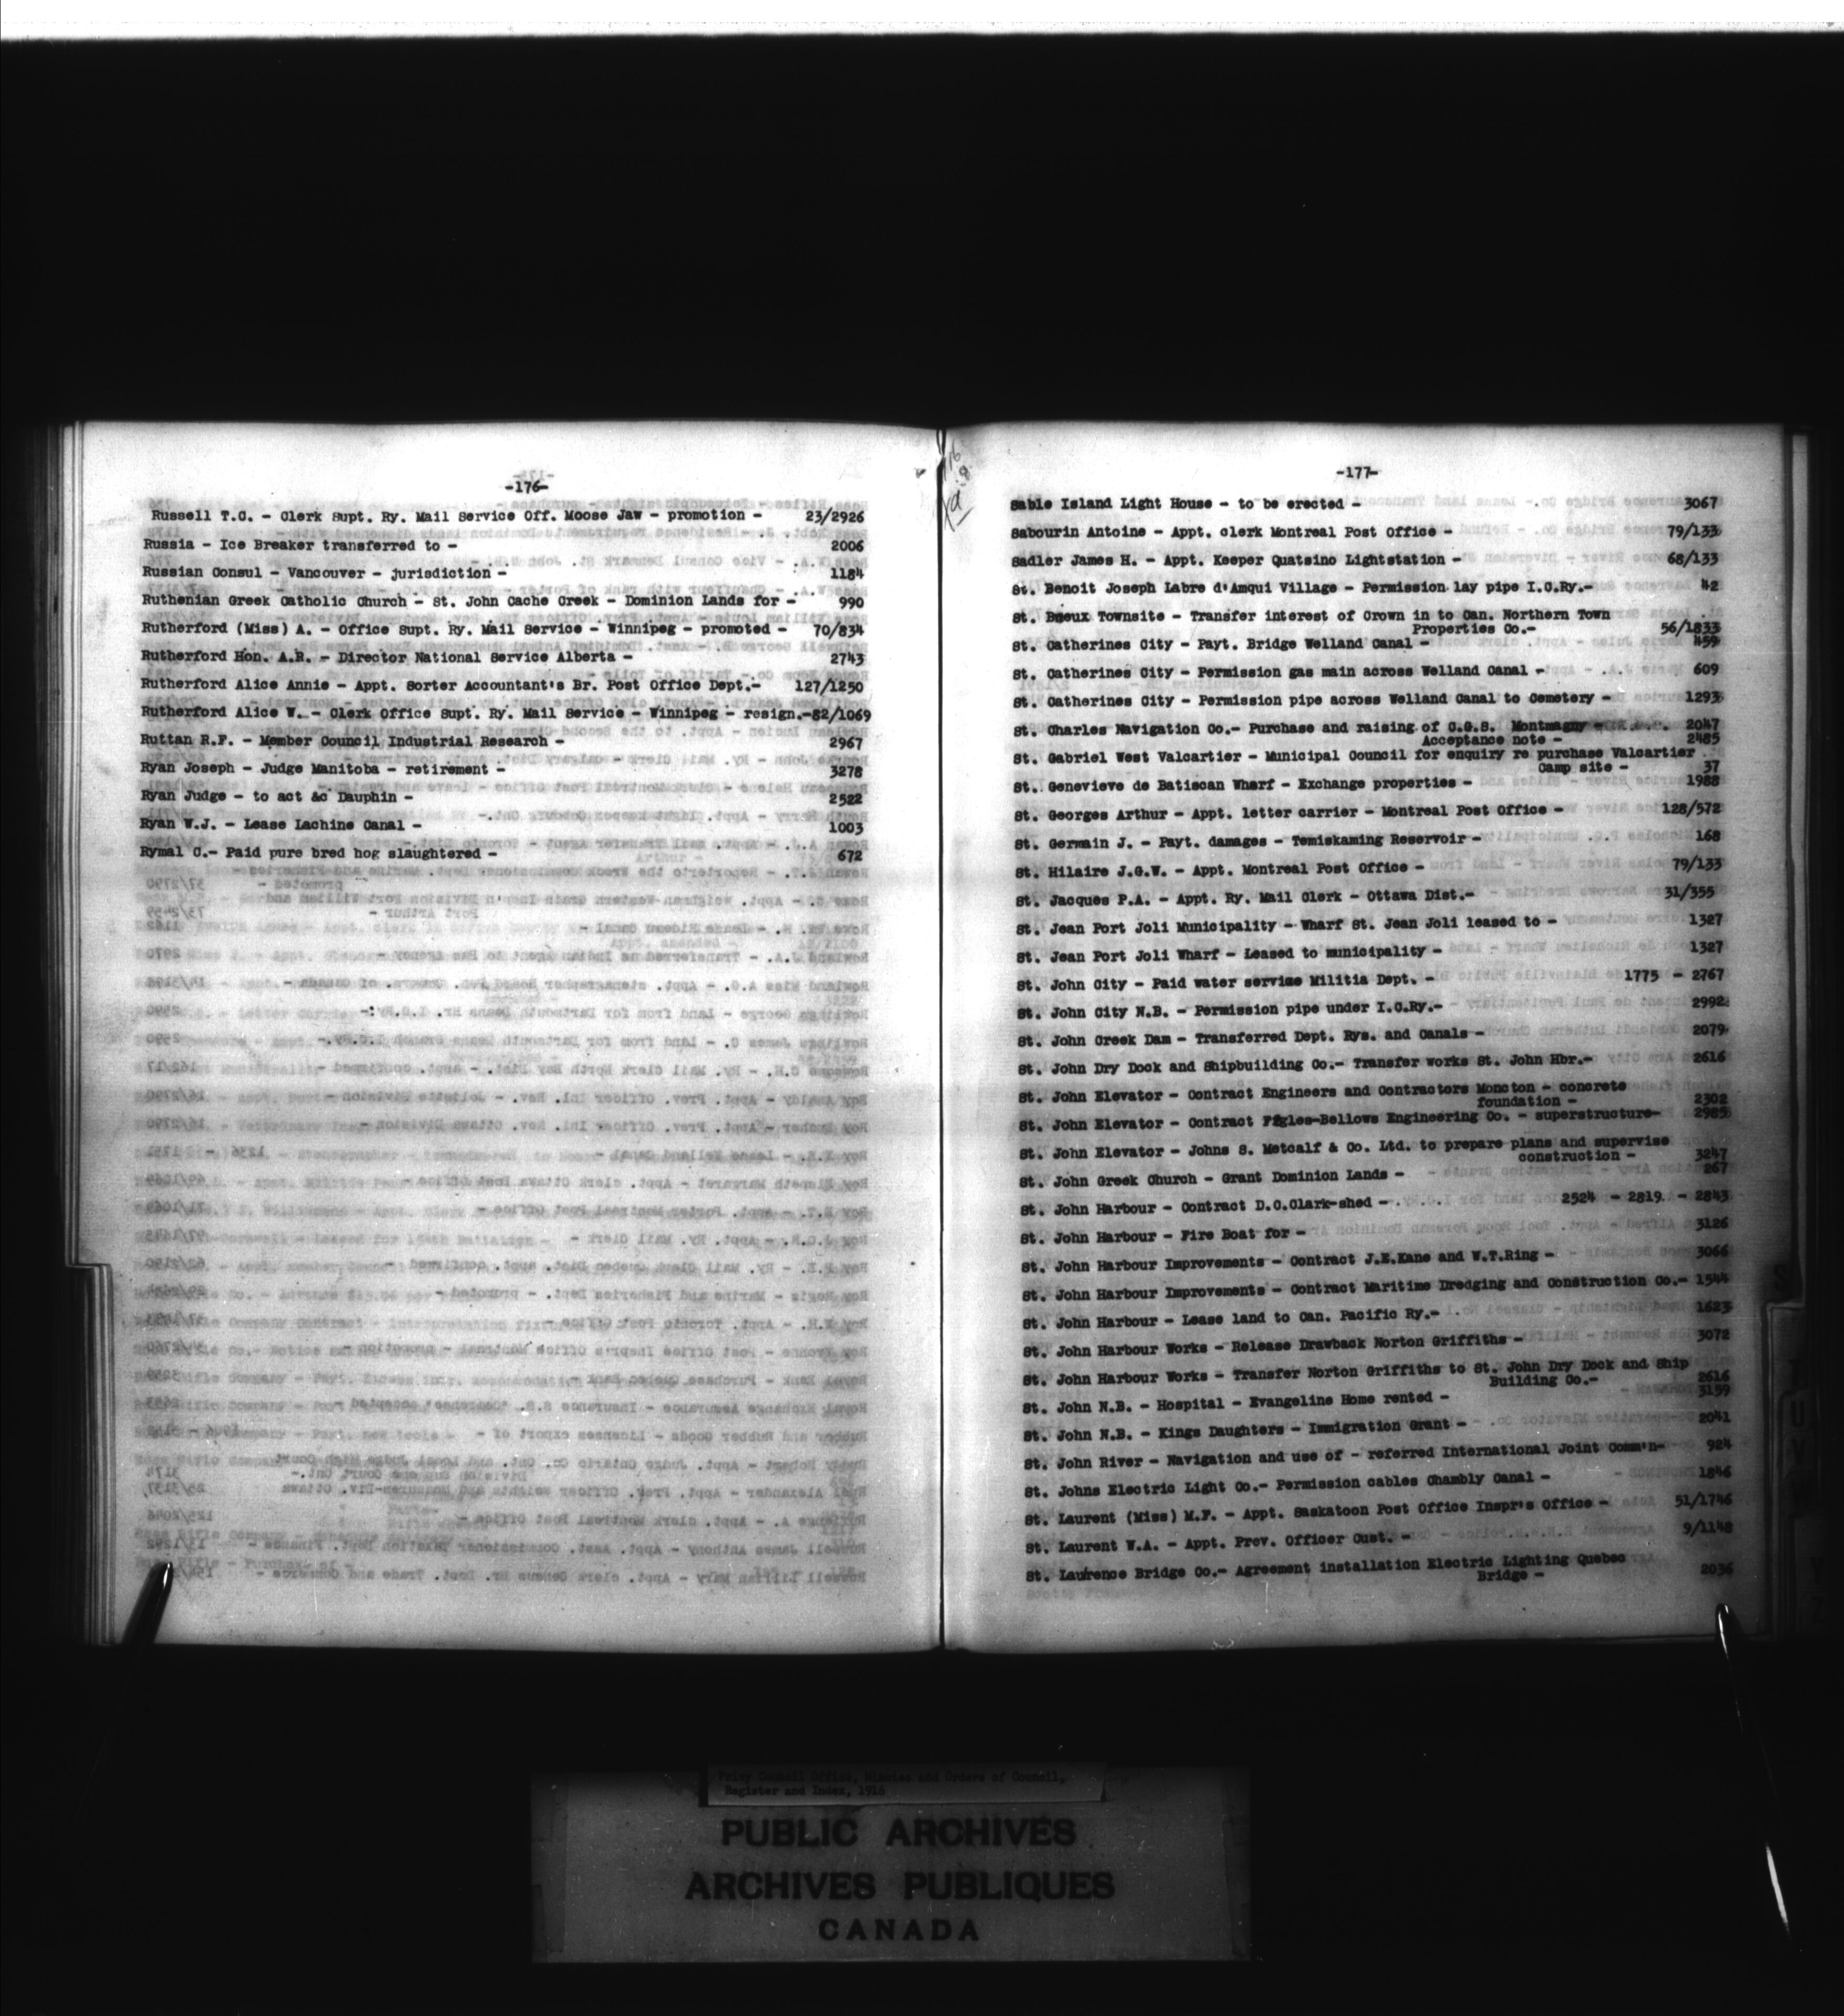 -176-
Russell T.C. - Clerk Supt. Ry. Mail Service Off. Moose Jaw - promotion - 23/2926
Russia - Ice Breaker transferred to - 2006
Russian Consul - Vancouver - jurisdiction - 1184
Ruthenian Greek Catholic Church - St. John Cache Creek - Dominion Lands for - 990
Rutherford (Miss) A. - Office Supt. Ry. Mail Service - Winnipeg - promoted - 70/834
Rutherford Hon. A.R. - Director National Service Alberta - 2743
Rutherford Alice Annie - Appt. Sorter Accountant's Br. Post Office Dept.- 127/1250
Rutherford Alice W. - Clerk Office Supt. Ry. Mail Service - Winnipeg - resign.-82/1069
Ruttan R.F. - Member Council Industrial Research - 2967
Ryan Joseph - Judge Manitoba - retirement - 3278
Ryan Judge - to act &c Dauphin - 2522
Ryan W.J. - Lease Lachine Canal - 1003
Rymal C.- Paid pure bred hog slaughtered - 672
-177-
Sable Island Light House - to be erected - 3067
Sabourin Antoine - Appt. clerk Montreal Post Office - 79/133
Sadler James H. - Appt. Keeper Quatsino Lightstation - 68/133
St. Benoit Joseph Labre d'Amqui Village - Permission lay pipe I.C.Ry.- 42
St. Bmeux Townsite - Transfer interest of Crown in to Can. Northern Town
Properties Co.- 56/1833
St. Catherines City - Payt. Bridge Welland Canal - 459
St. Catherines City - Permission gas main across Welland Canal - 609
St. Catherines City - Permission pipe across Welland Canal to Cemetery - 1293
St. Charles Navigation Co.- Purchase and raising of C.G.S. Montmagny - 2047
Acceptance note - 2485
St. Gabriel West Valcartier - Municipal Council for enquiry re purchase Valcartier
Camp site - 37
St. Genevieve de Batiscan Wharf - Exchange properties - 1988
St. Georges Arthur - Appt. letter carrier - Montreal Post Office - 128/572
St. Germain J. - Payt. damages - Temiskaming Reservoir - 168
St. Hilaire J.G.W. - Appt. Montreal Post Office - 79/133
St. Jacques P.A. - Appt. Ry. Mail Clerk - Ottawa Dist.- 31/355
St. Jean Port Joli Municipality - Wharf St. Jean Joli leased to - 1327
St. Jean Port Joli Wharf - Leased to municipality - 1327
St. John City - Paid water service Militia Dept. - 1775 - 2767
St. John City N.B. - Permission pipe under I.C.Ry.- 2992
St. John Creek Dam - Transferred Dept. Rys. and Canals - 2079
St. John Dry Dock and Shipbuilding Co.- Transfer works St. John Hbr.- 2616
St. John Elevator - Contract Engineers and Contractors Moncton - concrete
foundation - 2302
St. John Elevator - Contract Fegles-Bellows Engineering Co. - superstructure- 2985
St. John Elevator - Johns S. Metcalf & Co. Ltd. to prepare plans and supervise
construction - 3247
St. John Greek Church - Grant Dominion Lands - 267
St. John Harbour - Contract D.C.Clark-shed - 2524 - 2819 - 2843
St. John Harbour - Fire Boat for - 3126
St. John Harbour Improvements - Contract J.E.Kane and W.T.Ring - 3066
St. John Harbour Improvements - Contract Maritime Dredging and Construction Co.- 1544
St. John Harbour - Lease land to Can. Pacific Ry.- 1623
St. John Harbour Works - Release Drawback Norton Griffiths - 3072
St. John Harbour Works - Transfer Norton Griffiths to St. John Dry Dock and Ship
Building Co.- 2616
St. John N.B. - Hospital - Evangeline Home rented - 3159
St. John N.B. - Kings Daughters - Immigration Grant - 2041
St. John River - Navigation and use of - referred International Joint Comm'n- 924
St. Johns Electric Light Co.- Permission cables Chambly Canal - 1846
St. Laurent (Miss) M.F. - Appt. Saskatoon Post Office Inspr's Office - 51/1746
St. Laurent W.A. - Appt. Prev. Officer Cust. - 9/1148
St. Laurence Bridge Co.- Agreement installation Electric Lighting Quebec
Bridge - 2036
Privy Council Office, Minutes and Orders of Council,
Register and Index, 1916
PUBLIC ARCHIVES
ARCHIVES PUBLIQUES
CANADA